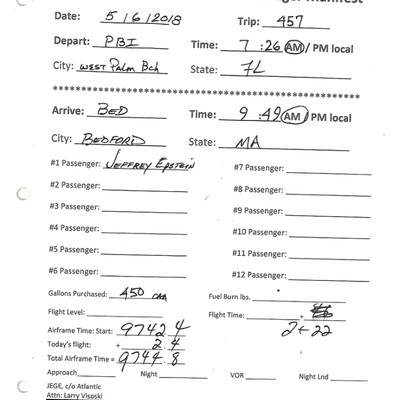 Manifest
Date: 5/6/2018 Trip: 457
Depart: PBI Time: 7:26 AM / PM local
City: West Palm Bch State: FL
************************************************
Arrive: BED Time: 9:49 AM / PM local
City: BEDFORD State: MA
#1 Passenger: JEFFREY EPSTEIN #7 Passenger:
#2 Passenger: #8 Passenger:
#3 Passenger: #9 Passenger:
#4 Passenger: #10 Passenger:
#5 Passenger: #11 Passenger:
#6 Passenger: #12 Passenger:
Gallons Purchased: 450 Fuel Burn lbs.
Flight Level: Flight Time: +
2+22
Airframe Time: Start: 9742.4
Today's flight: + 2.4
Total Airframe Time = 9744.8
Approach Night VOR Night Lnd
JEGE, c/o Atlantic
Attn: Larry Visoski